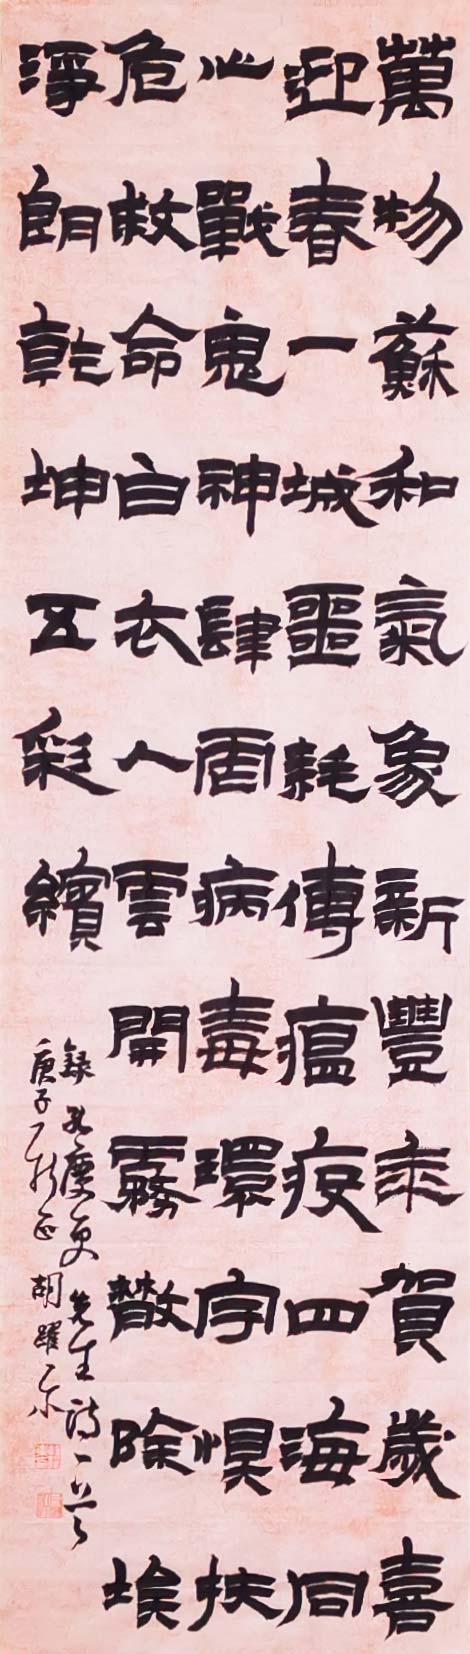 萬物蘇和氣象新豐年賀歲喜
迎春一城噩耗傳瘟疫四海同
心戰鬼神肆虐病毒環宇懼扶
危救命白衣人雲開霧散除埃
淨朗乾坤五彩繽
錄 先生詩一首
庚子 新正 胡躍